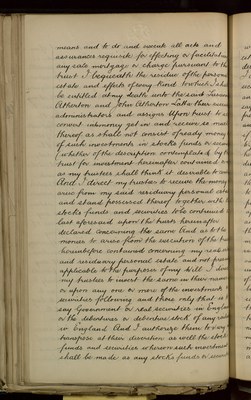 means and to do and execute all acts and
assurances requisite for effecting or facilitating
any sale mortgage or charge pursuant to the
trust I bequeath the residue of the personal
estate and effects of every kind to which I shall
be entitled at my death unto the said
Atherton and John Atherton their
administrators and assigns Upon trust to
convert into money get in and receive so much
thereof as shall not consist of ready money
of such investments in stocks funds or
(whether of the description contemplated by the
trust for investment hereinafter contained
as my trustees shall think it desirable to
And I direct my trustees to receive the money
arise from my said residuary personal estate
and stand possessed thereof together with the
stocks funds and securities to be continued
last aforesaid upon the trusts hereinafter
declared concerning the same And as to the
moneys to arise from the execution of the trusts
hereinbefore contained concerning my real
and residuary personal estate and not
applicable to the purposes of my Will I direct
my trustees to invest the same in their names
in or upon any one or more of the investments
securities following and those only that is to
say Government or real securities in England
or the debentures or debenture stock of any
in England And I authorize them to vary
transpose at their discretion as well the stocks
funds and securities whereon such investment
shall be made as any stocks funds or securities